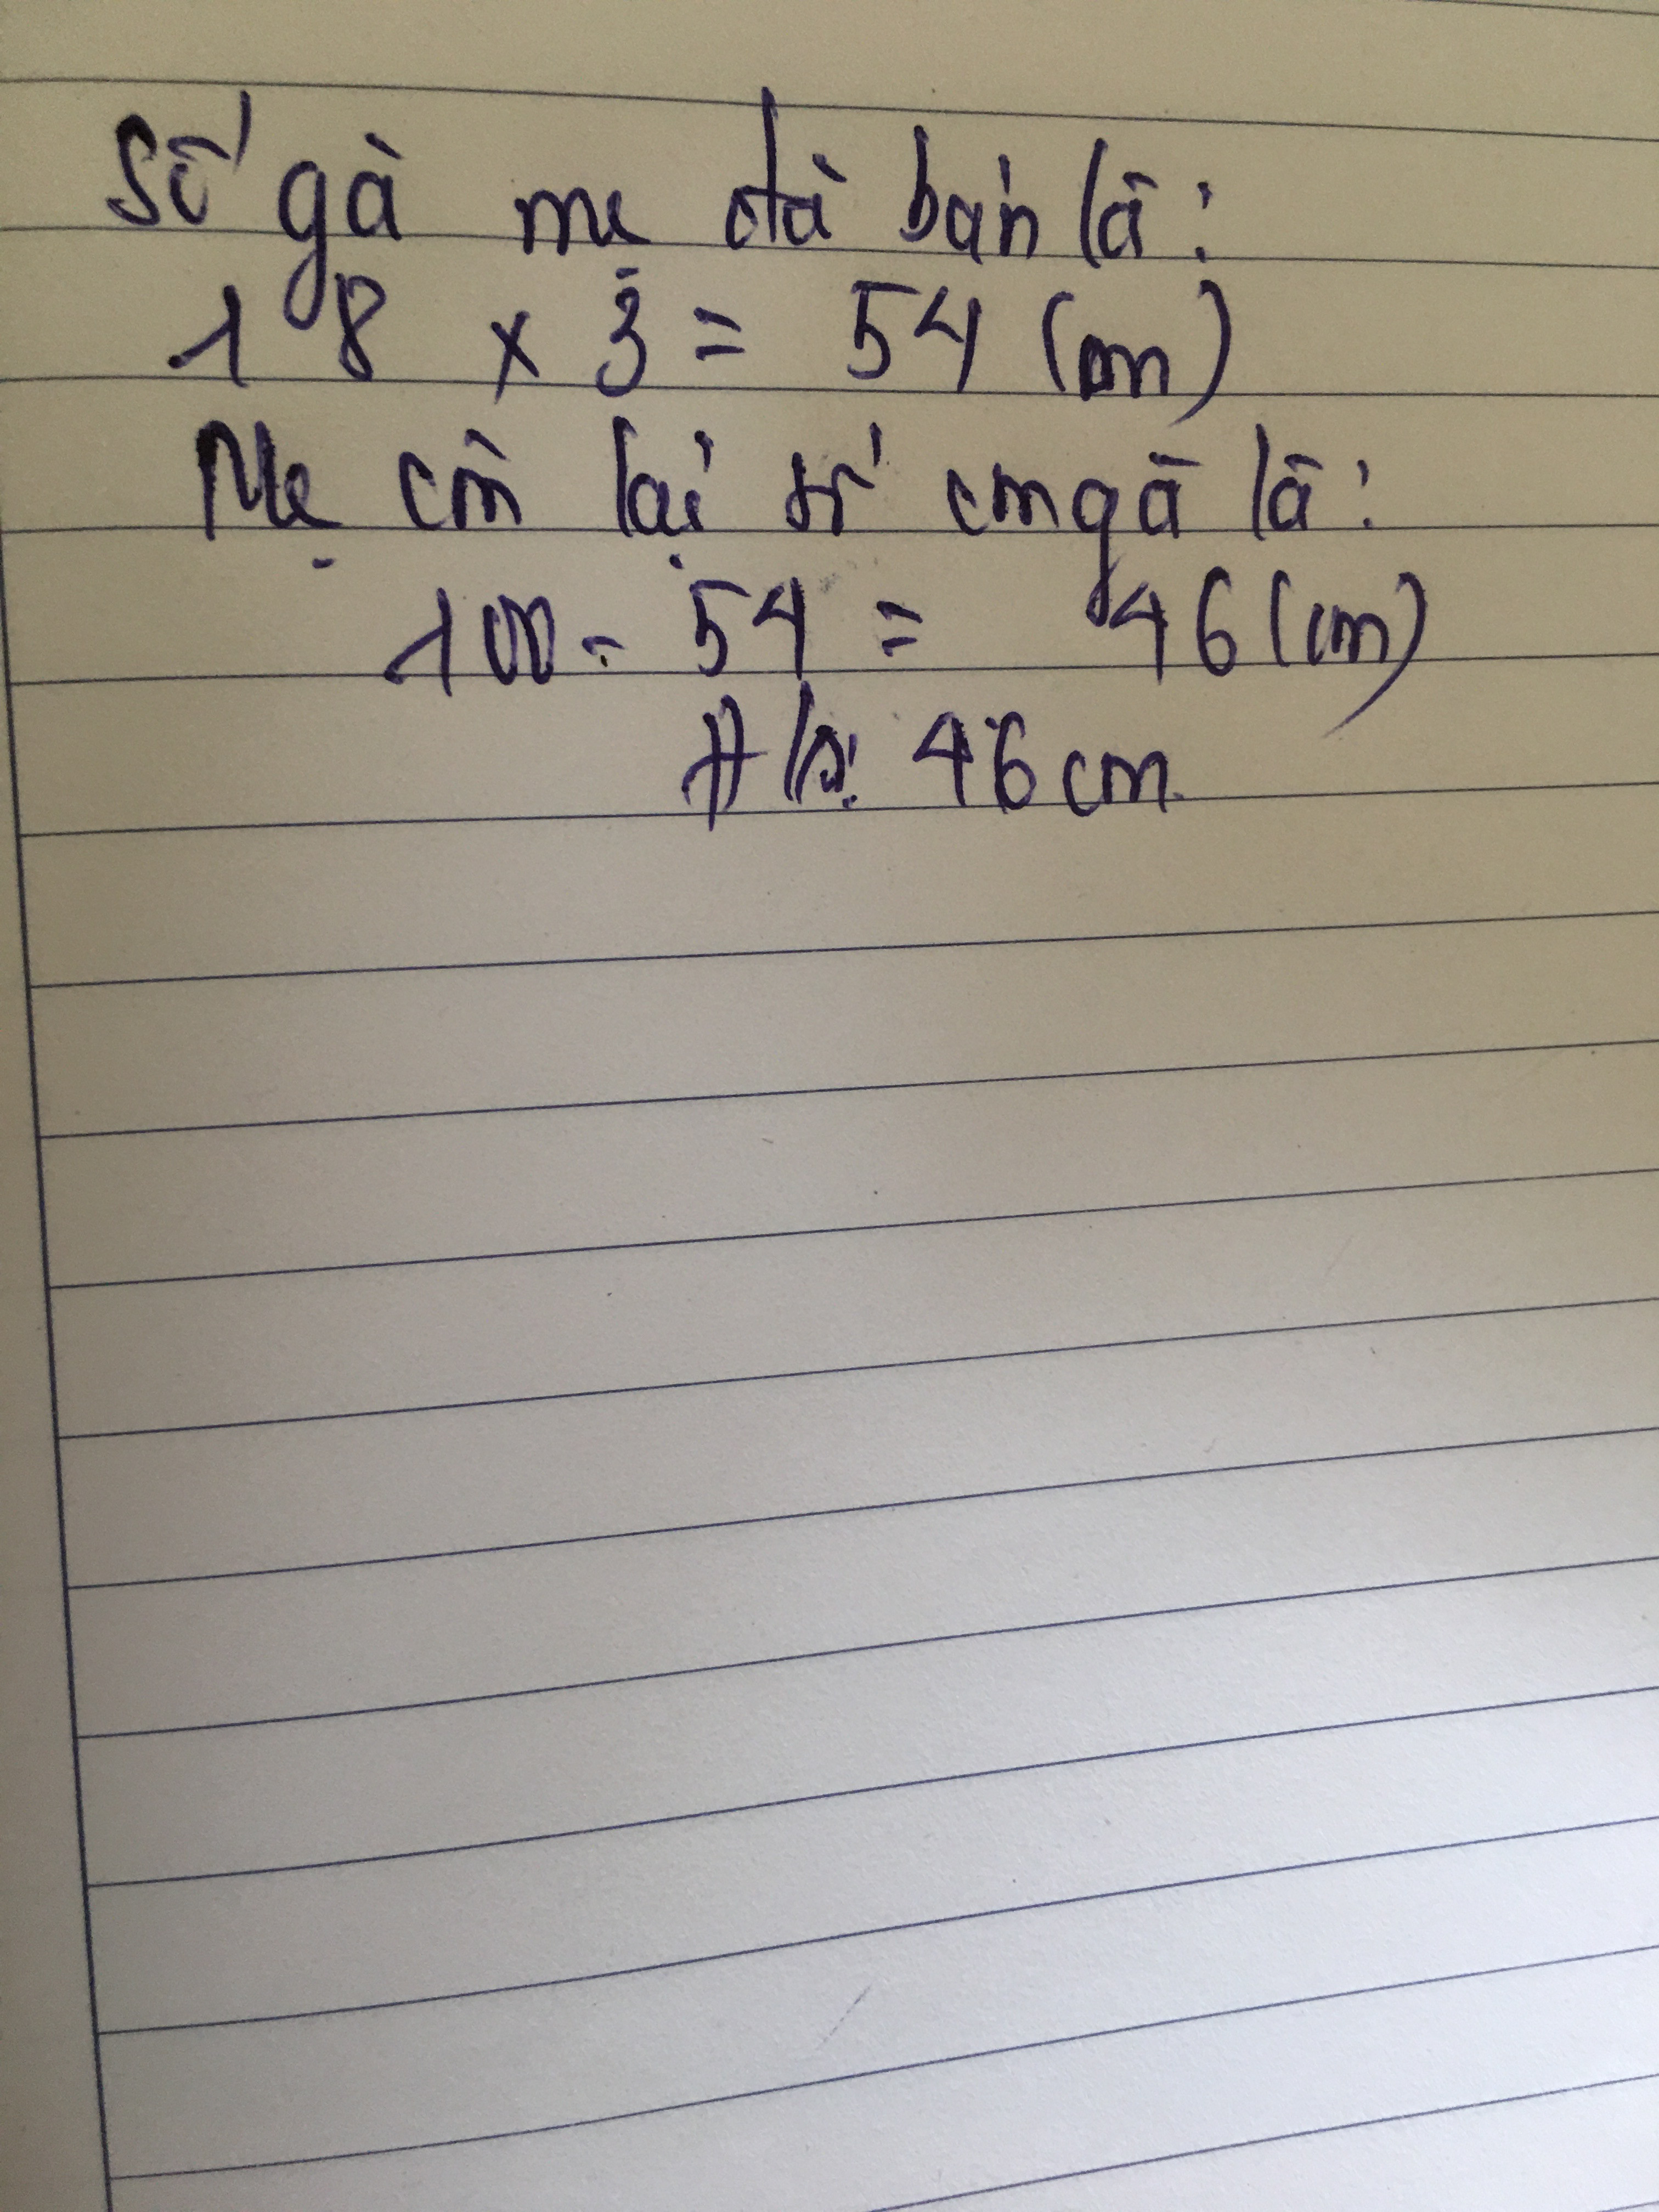 Số gà mẹ đã bán là:
18 x 3 = 54 (con)
Mẹ còn lại số con gà là:
100 - 54 = 46 (con)
Đ/s: 46 con